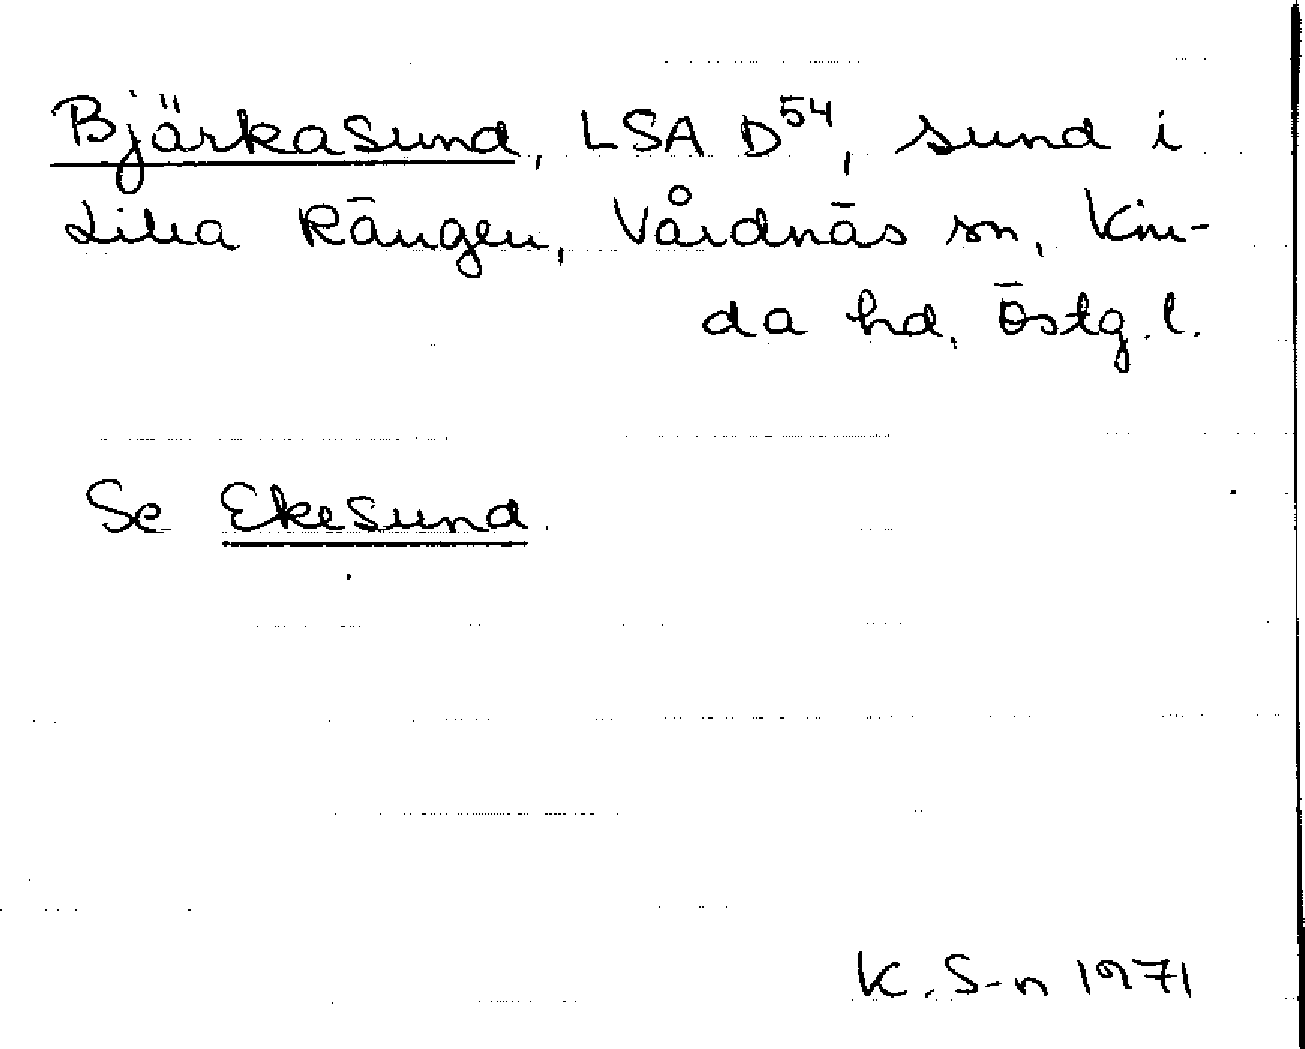 Bjärkasund, LSA D⁵⁴, sund i
Lilla Rängen, Vårdnäs sn, Kin-
da hd, Östg. l.
Se Ekesund.
K. S-n 1971